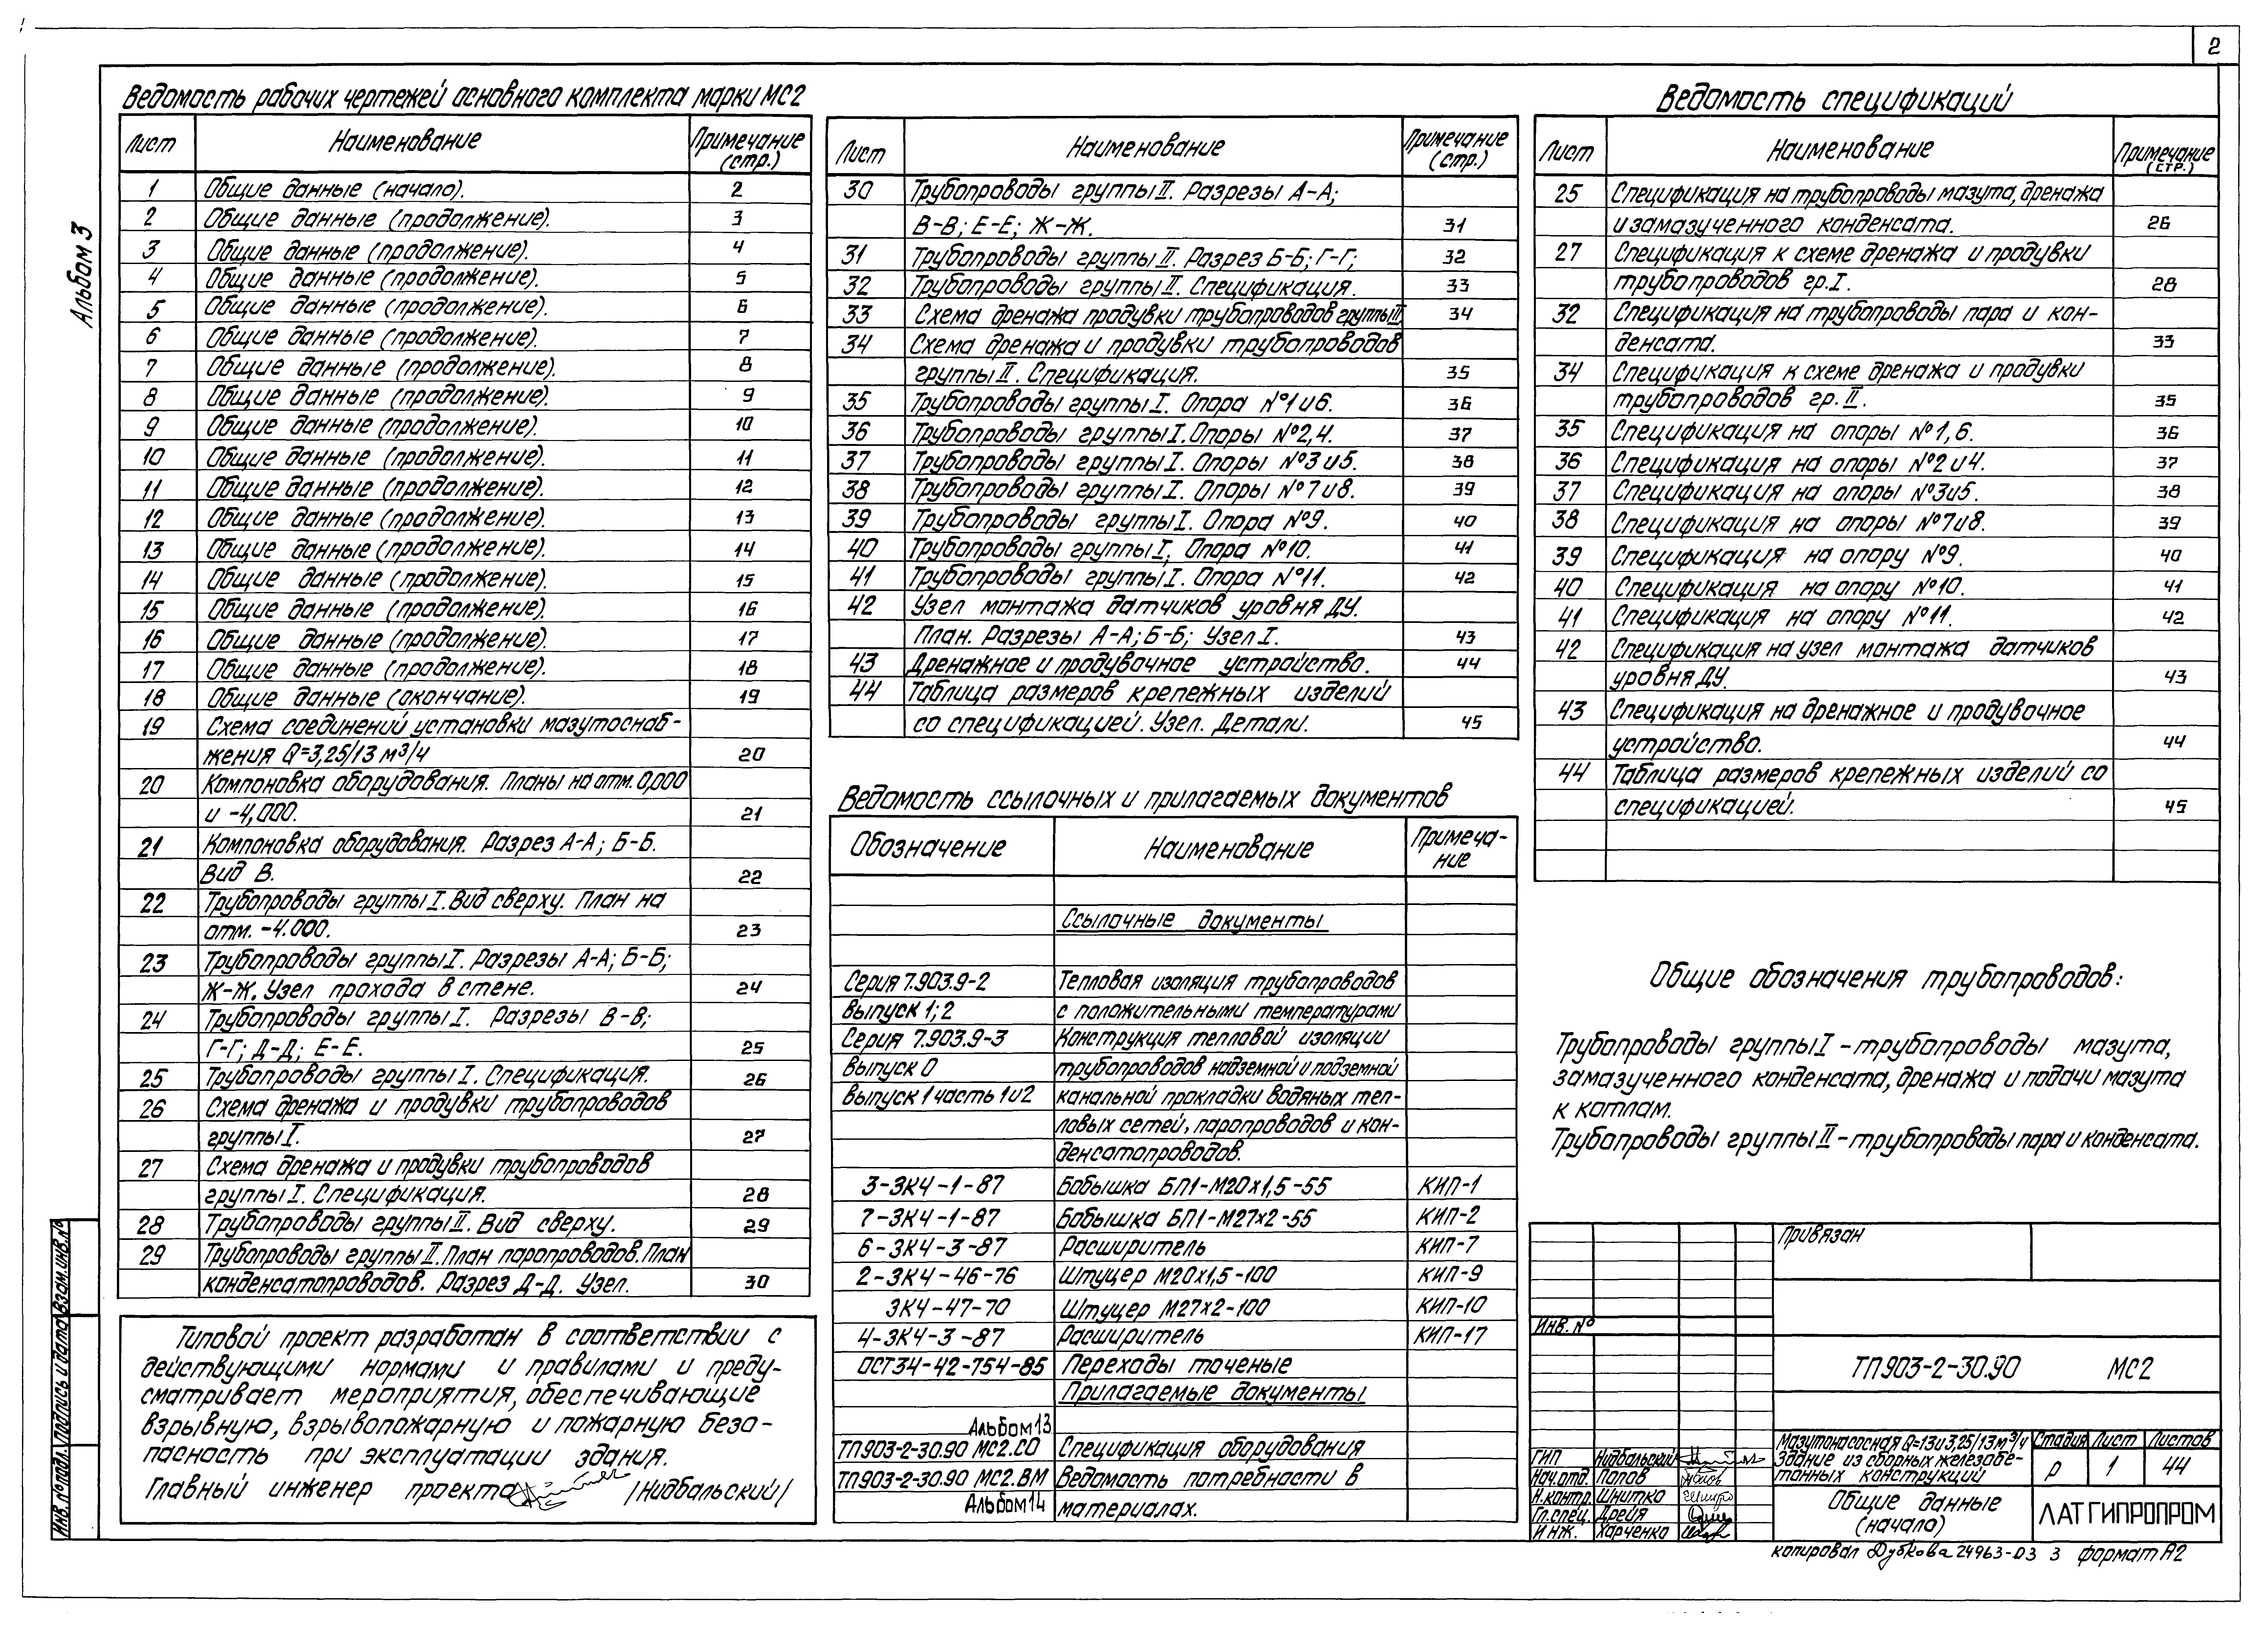 2
Альбом 3
Ведомость рабочих чертежей основного комплекта марки МС2
Лист Наименование Примечание (стр.)
1 Общие данные (начало). 2
2 Общие данные (продолжение). 3
3 Общие данные (продолжение). 4
4 Общие данные (продолжение). 5
5 Общие данные (продолжение). 6
6 Общие данные (продолжение). 7
7 Общие данные (продолжение). 8
8 Общие данные (продолжение). 9
9 Общие данные (продолжение). 10
10 Общие данные (продолжение). 11
11 Общие данные (продолжение). 12
12 Общие данные (продолжение). 13
13 Общие данные (продолжение). 14
14 Общие данные (продолжение). 15
15 Общие данные (продолжение). 16
16 Общие данные (продолжение). 17
17 Общие данные (продолжение). 18
18 Общие данные (окончание). 19
19 Схема соединений установки мазутоснаб-
жения Q=3,25/13 м³/ч 20
20 Компоновка оборудования. Планы на отм. 0,000
и -4,000. 21
21 Компоновка оборудования. Разрез А-А; Б-Б.
Вид В. 22
22 Трубопроводы группы I. Вид сверху. План на
отм. -4.000. 23
23 Трубопроводы группы I. Разрезы А-А; Б-Б;
Ж-Ж. Узел прохода в стене. 24
24 Трубопроводы группы I. Разрезы В-В;
Г-Г; Д-Д; Е-Е. 25
25 Трубопроводы группы I. Спецификация. 26
26 Схема дренажа и продувки трубопроводов
группы I. 27
27 Схема дренажа и продувки трубопроводов
группы I. Спецификация. 28
28 Трубопроводы группы II. Вид сверху. 29
29 Трубопроводы группы II. План паропроводов. План
конденсатопроводов. Разрез Д-Д. Узел. 30
Типовой проект разработан в соответствии с
действующими нормами и правилами и преду-
сматривает мероприятия, обеспечивающие
взрывную, взрывопожарную и пожарную безо-
пасность при эксплуатации здания.
Главный инженер проекта /Нидбальский/
Лист Наименование Примечание (стр.)
30 Трубопроводы группы II. Разрезы А-А;
В-В; Е-Е; Ж-Ж. 31
31 Трубопроводы группы II. Разрез Б-Б; Г-Г; 32
32 Трубопроводы группы II. Спецификация. 33
33 Схема дренажа продувки трубопроводов группы II 34
34 Схема дренажа и продувки трубопроводов
группы II. Спецификация. 35
35 Трубопроводы группы I. Опора №1 и 6. 36
36 Трубопроводы группы I. Опоры №2,4. 37
37 Трубопроводы группы I. Опоры №3 и 5. 38
38 Трубопроводы группы I. Опоры №7 и 8. 39
39 Трубопроводы группы I. Опора №9. 40
40 Трубопроводы группы I. Опора №10. 41
41 Трубопроводы группы I. Опора №11. 42
42 Узел монтажа датчиков уровня ДУ.
План. Разрезы А-А; Б-Б; Узел I. 43
43 Дренажное и продувочное устройство. 44
44 Таблица размеров крепежных изделий
со спецификацией. Узел. Детали. 45
Ведомость ссылочных и прилагаемых документов
Обозначение Наименование Примеча-
ние
Ссылочные документы
Серия 7.903.9-2 Тепловая изоляция трубопроводов
Выпуск 1; 2 с положительными температурами
Серия 7.903.9-3 Конструкция тепловой изоляции
Выпуск 0 трубопроводов надземной и подземной
выпуск 1 часть 1 и 2 канальной прокладки водяных теп-
ловых сетей, паропроводов и кон-
денсатопроводов.
3-ЗК4-1-87 Бобышка БП1-М20х1,5-55 КИП-1
7-ЗК4-1-87 Бобышка БП1-М27х2-55 КИП-2
6-ЗК4-3-87 Расширитель КИП-7
2-ЗК4-46-76 Штуцер М20х1,5-100 КИП-9
ЗК4-47-70 Штуцер М27х2-100 КИП-10
4-ЗК4-3-87 Расширитель КИП-17
ОСТ34-42-754-85 Переходы точеные
Прилагаемые документы
Альбом 13
ТП903-2-30.90 МС2.СО Спецификация оборудования
ТП903-2-30.90 МС2.ВМ Ведомость потребности в
Альбом 14 материалах.
Ведомость спецификаций
Лист Наименование Примечание (стр.)
25 Спецификация на трубопроводы мазута, дренажа
и замазученного конденсата. 26
27 Спецификация к схеме дренажа и продувки
трубопроводов гр. I. 28
32 Спецификация на трубопроводы пара и кон-
денсата. 33
34 Спецификация к схеме дренажа и продувки
трубопроводов гр. II. 35
35 Спецификация на опоры №1,6. 36
36 Спецификация на опоры №2 и 4. 37
37 Спецификация на опоры №3 и 5. 38
38 Спецификация на опоры №7 и 8. 39
39 Спецификация на опору №9. 40
40 Спецификация на опору №10. 41
41 Спецификация на опору №11. 42
42 Спецификация на узел монтажа датчиков
уровня ДУ. 43
43 Спецификация на дренажное и продувочное
устройство. 44
44 Таблица размеров крепежных изделий со
спецификацией. 45
Общие обозначения трубопроводов:
Трубопроводы группы I - трубопроводы мазута,
замазученного конденсата, дренажа и подачи мазута
к котлам.
Трубопроводы группы II - трубопроводы пара и конденсата.
Привязан
Инв. №
ТП903-2-30.90 МС2
Мазутонасосная Q=13 и 3,25/13 м³/ч
Здание из сборных железобе-
тонных конструкций
Стадия Лист Листов
Р 1 44
ГИП Нидбальский
Нач.отд. Попов
Н.контр. Шнитко
Гл.спец. Дрейя
Инж. Харченко
Общие данные
(начало)
ЛАТГИПРОПРОМ
копировал Дубкова 24963-03 3 формат А2
Инв. № подл. Подпись и дата Взам. инв. №